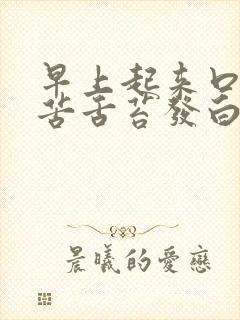 早上起來口
苦舌苔發白
晨曦的愛戀